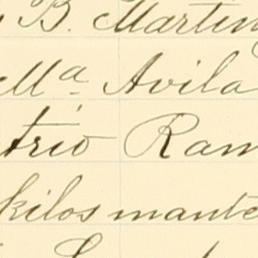 B. Martin
Mª Avila
trio Ram
kilos mante